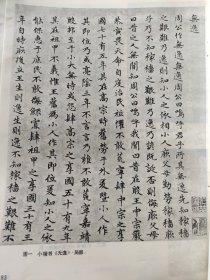 無逸
周公作無逸周公曰嗚呼君子所其無逸先知稼穡
之艱難乃逸則知小人之依相小人厥父母勤勞稼穡厥
子乃不知稼穡之艱難乃逸乃諺既誕否則侮厥父母
曰昔之人無聞知周公曰嗚呼我聞曰昔在殷王中宗嚴
恭寅畏天命自度治民祗懼不敢荒寧肆中宗之享
國七十有五年其在高宗時舊勞于外爰暨小人作
其即位乃或亮陰三年不言
至于小大無時或怨肆高宗之享國五十有九年
其在祖甲不義惟王舊爲小人作其即位爰知小人之依
能保惠于庶民不敢侮鰥寡肆祖甲之享國三十有三
年自時厥後立王生則逸生則逸不知稼穡之艱難不
图一 小楷书《无逸》局部
83